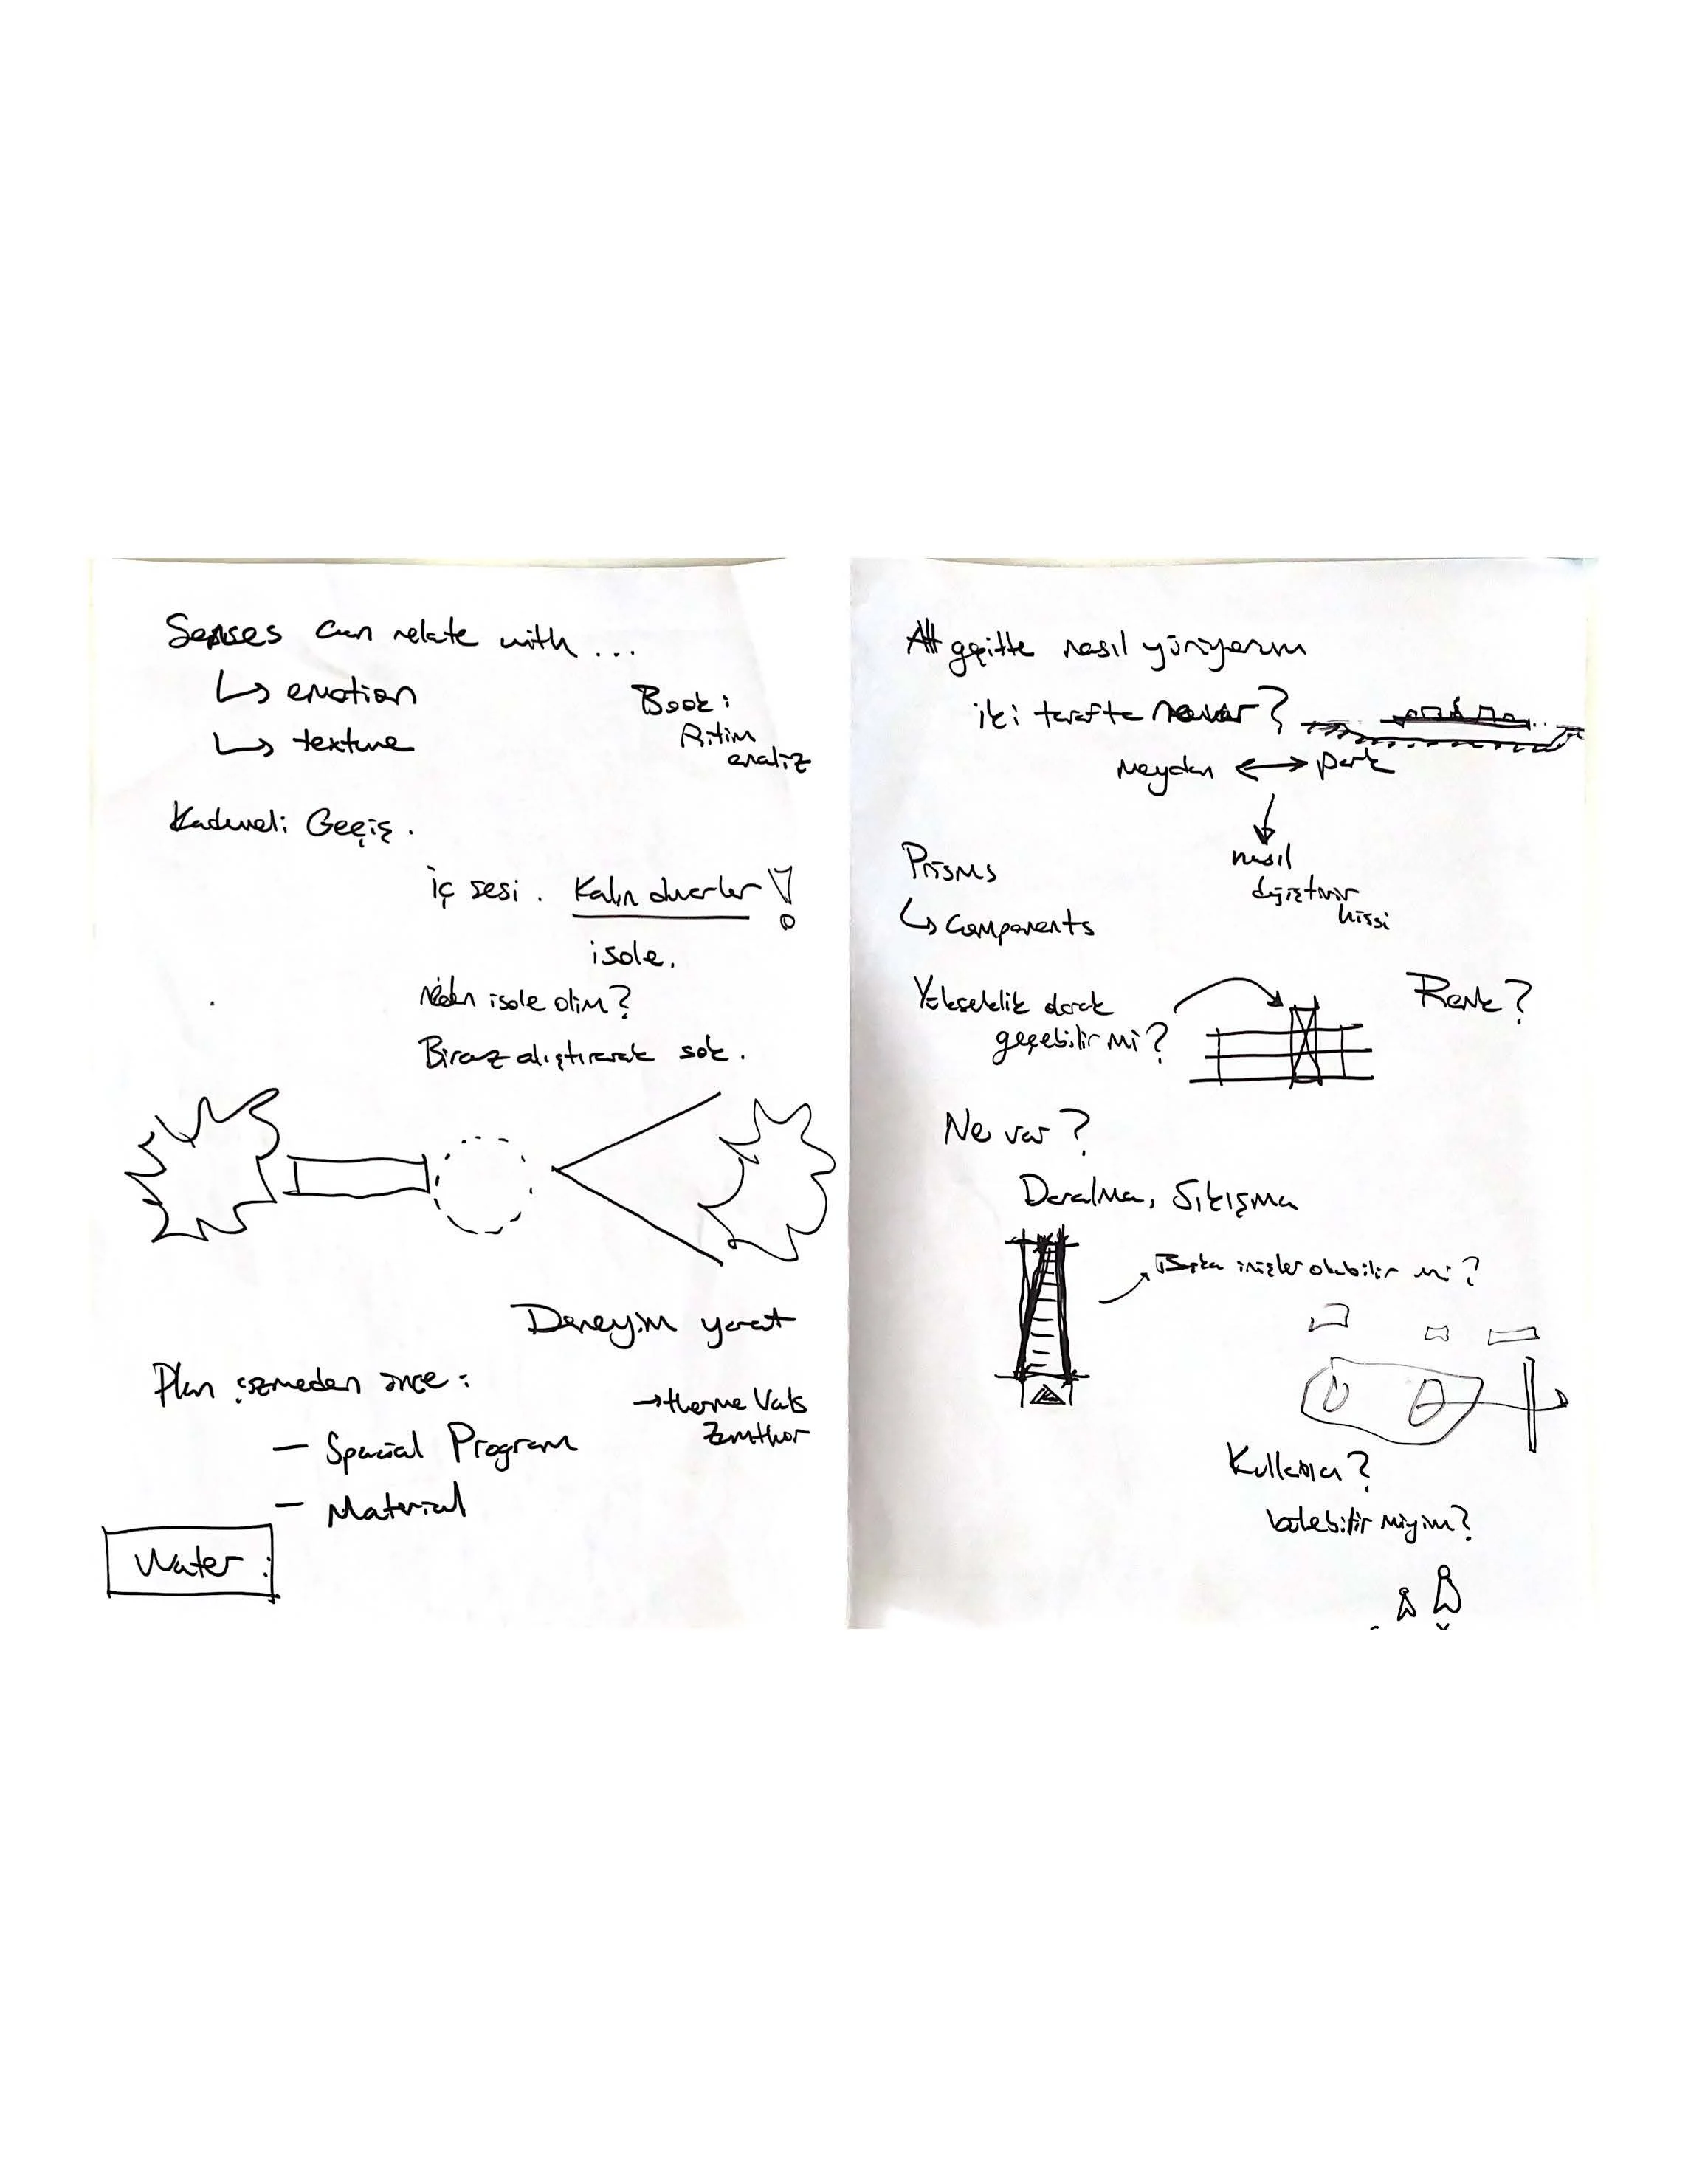 Senses can relate with ...
↳ emotion
↳ texture
Book:
Ritim
analiz
Kademeli Geçiş.
iç sesi. Kalın duvarlar!
isole.
Neden isole olim?
Biraz alıştırarak sok.
Deneyim yarat
Plan çizmeden önce:
→ therme Vals
Zumthor
— Spacial Program
— Material
Water:
Alt geçitte nasıl yürüyorum
iki tarafta ne var?
meydan ↔ park
nasıl
değiştirir
hissi
Prisms
↳ Components
Yükseklik olarak
geçebilir mi?
Renk?
Ne var?
Daralma, Sıkışma
Başka inişler olabilir mi?
Kullanıcı?
miyim?